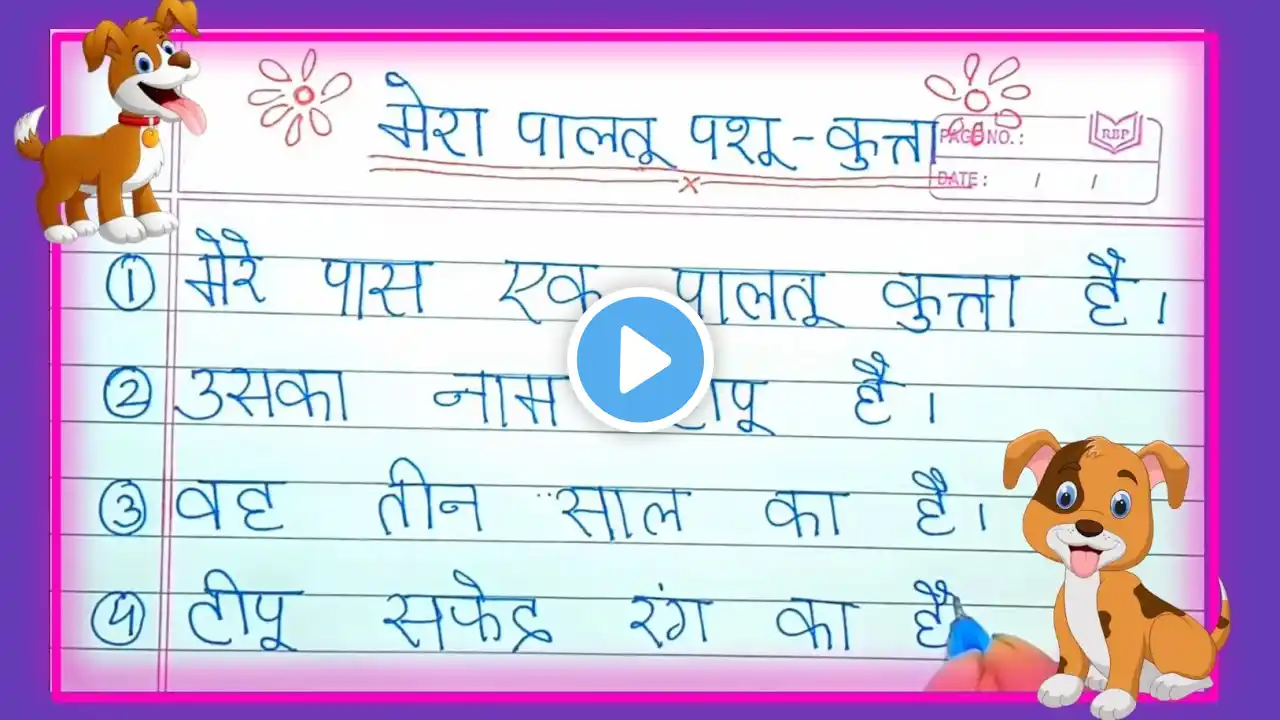 मेरा पालतू पशू - कुत्ता
PAGE NO.:
RBP
DATE: / /
① मेरे पास एक पालतू कुत्ता है।
② उसका नाम है।
③ वह तीन साल का है।
④ टीपू सफेद रंग का है